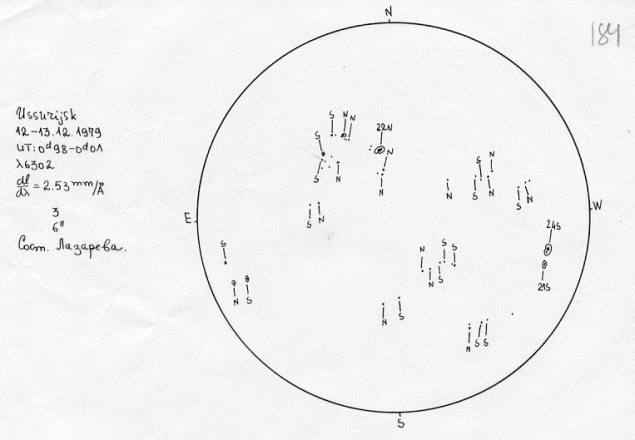 N
184
Ussurijsk
12-13.12.1979
UT: 0ᵈ98-0ᵈ01
λ6302
dl/dλ = 2.53 mm/Å
3
6"
Сост. Лазарева.
S N N
22N
S
N
S N
N
N
S N
N
S N
S N
E
W
24S
S
N S S
N S
21S
N S
N S
N S S
S